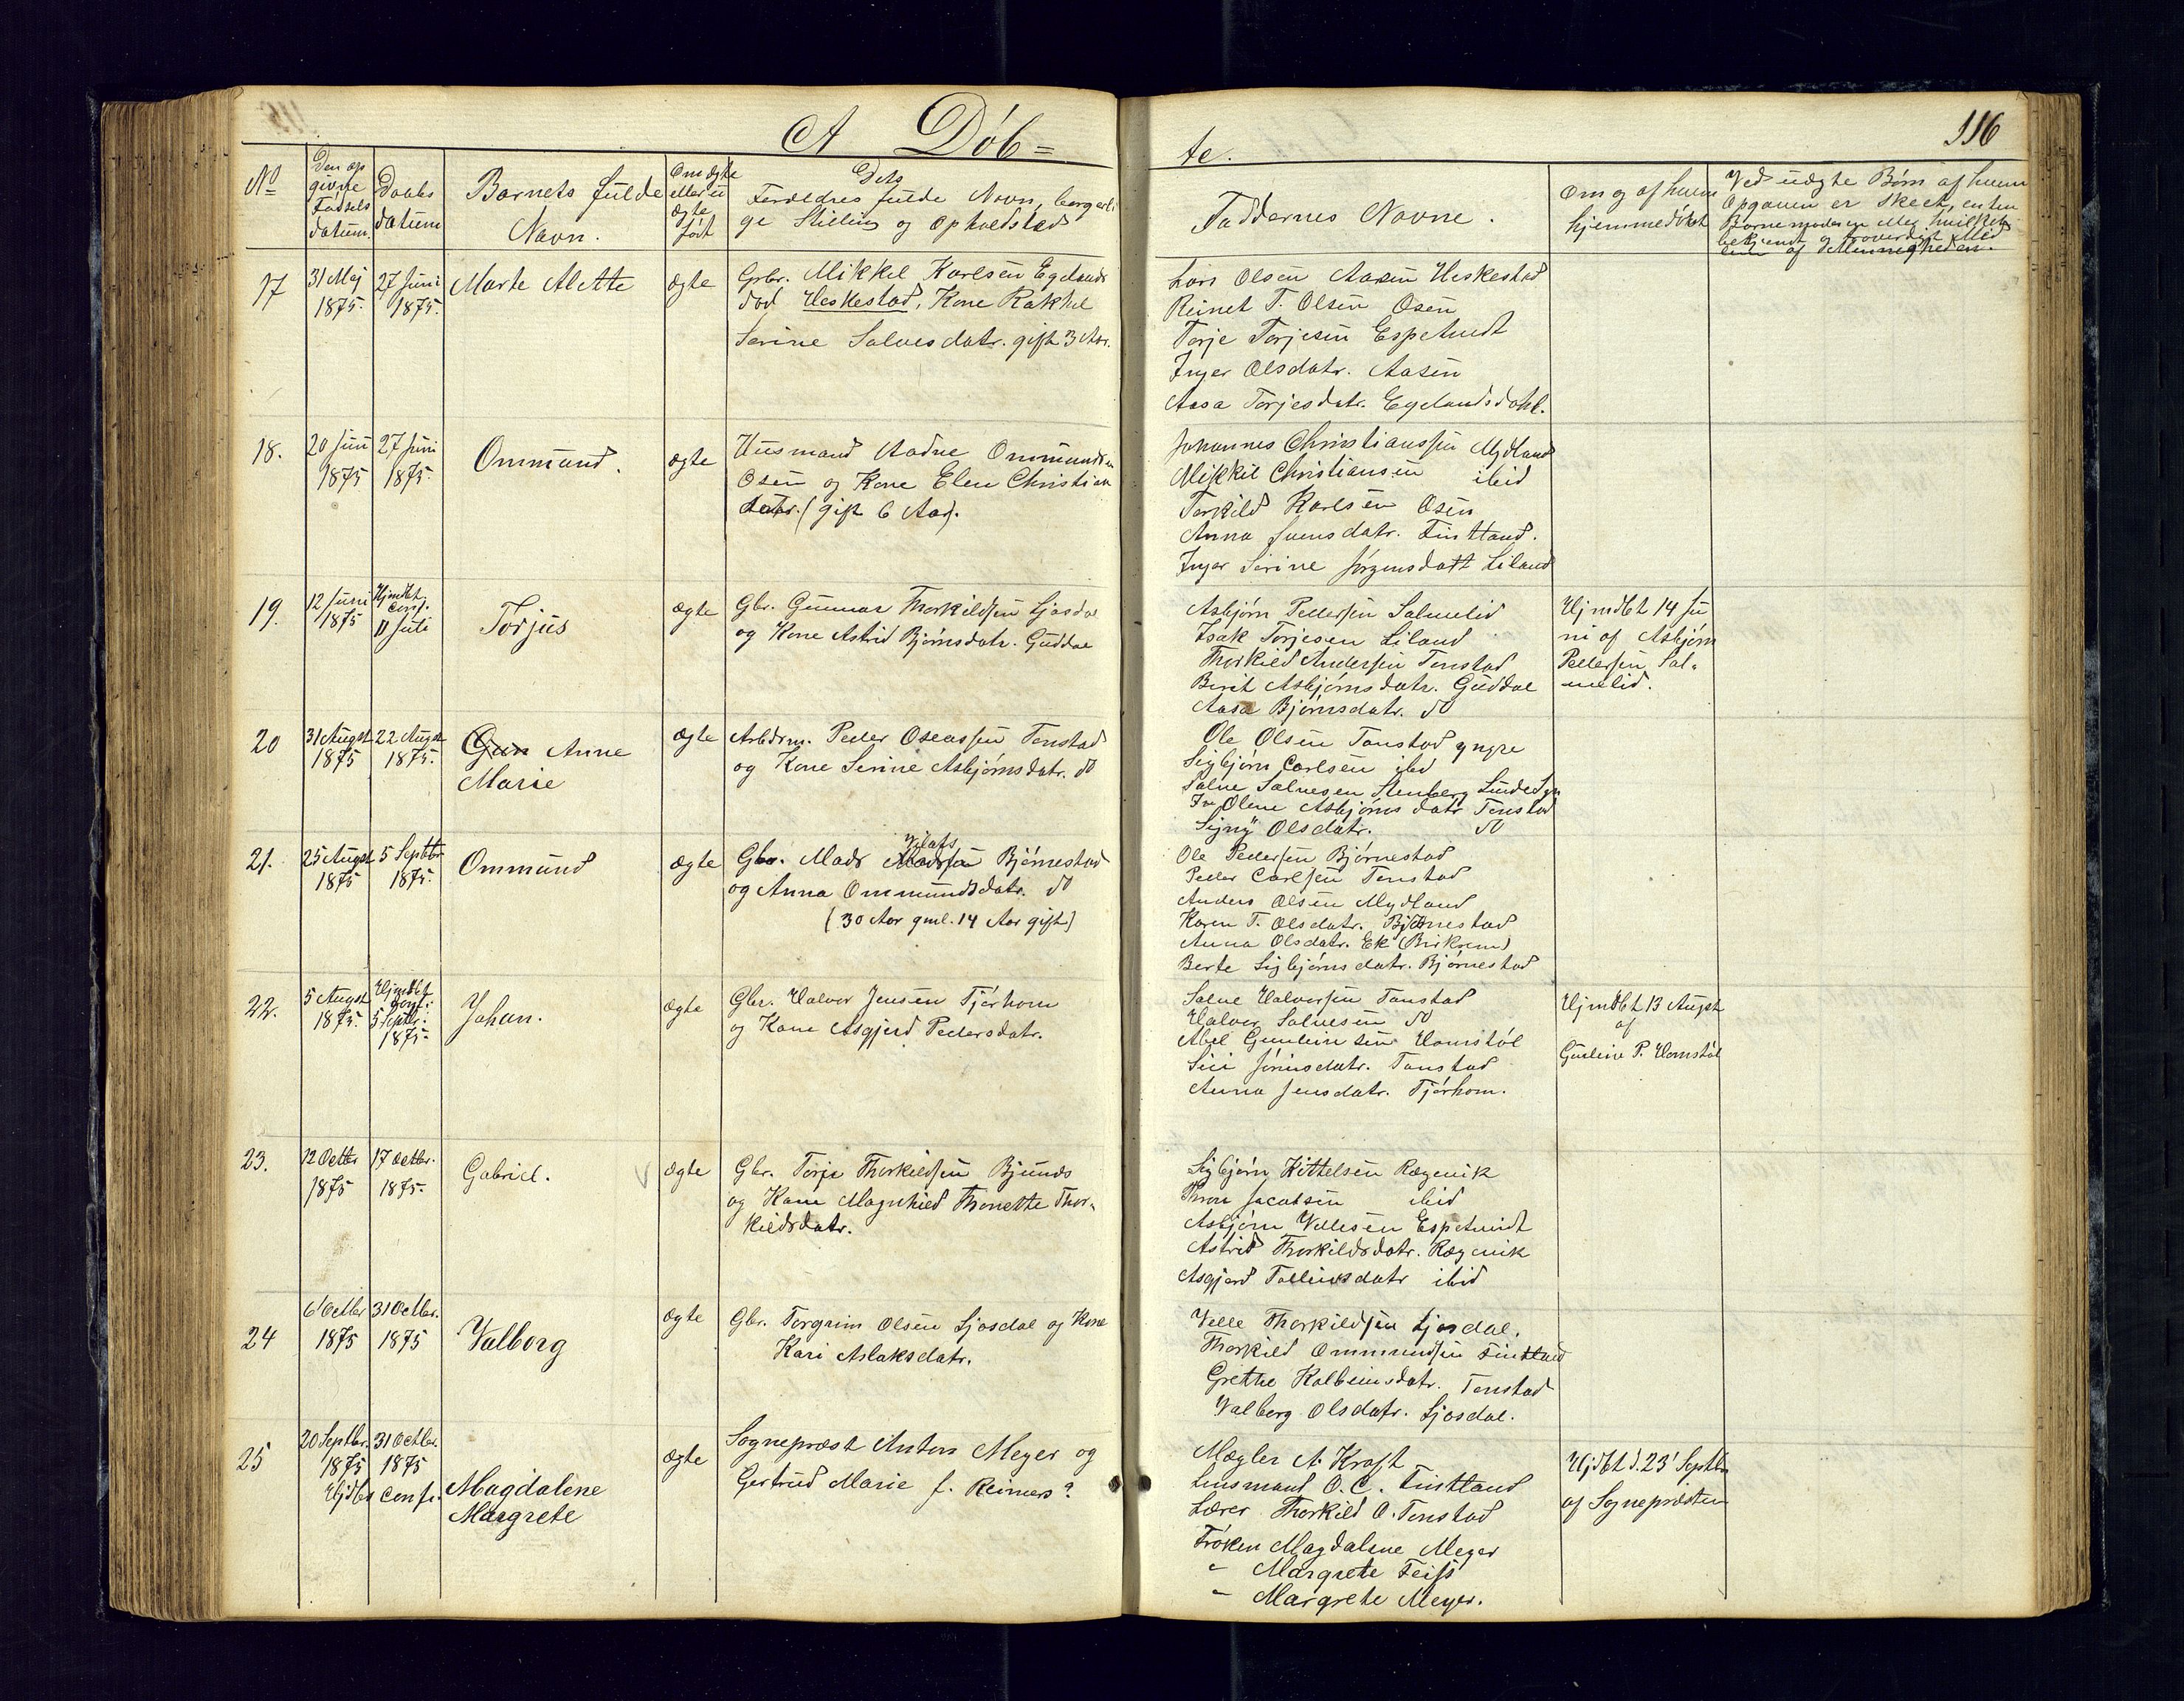 A Döb=
te.
116
No
Den op
givne
Fødsels
datum.
Daabs
datum
Barnets fulde
Navn.
Om ægte
eller u
ægte
født
Dets
Forældres fulde Navn, borgerli
ge Stilling og Opholdsted
Faddernes Navne.
Om og af hvem
hjemmedøbt
Ved uægte Børn af hvem
Opgaven er skeet, enten
17
31 Maj
1875.
27 Juni
1875.
Marte Alette
ægte
Grbr. Mikkel Karlsen Egelands
dal Heskestad, Kone Rakhel
Serine Salvesdatr. gift 3 Aar.
Lars Olsen Aasen Heskestad
Reinet T. Olsen Osen
Torje Torjesen Espetvedt
Inger Olsdatr. Aasen
Aasa Torjesdatr. Egelandsdahl.
18.
20 Juni
1875
27 Juni
1875.
Ommund.
ægte
Husmand Aadne Ommundsen
Osen og Kone Elen Christian
datr. (gift 6 Aar).
Johannes Christianssen Mydland
Mikkel Christiansen ibid
Torkild Karlsen Osen
Anna Svensdatr. Fintland.
Inger Serine Jörgensdatt Liland
19.
12 Juni
1875
Hjmdbt
conf.
11 Juli
Torjus
ægte
Gbr. Gunnar Thorkildsen Ljosdal
og Kone Astrid Bjørnsdatr. Guddal
Asbjørn Pedersen Salmelid
Isak Torjesen Liland
Thorkild Andersen Tonstad
Berit Asbjørnsdatr. Guddal
Aasa Bjørnsdatr. do
Hjmdbt 14 Ju
ni af Asbjørn
Pedersen Sal-
melid.
20
31 Augst
1875
22 Augst
1875.
Gun Anne
Marie
ægte
Arbdrm. Peder Oseassen Tonstad
og Kone Serine Asbjørnsdatr. do
Ole Olsen Tonstad yngre
Sigbjørn Carlsen ibid
Salve Salvesen Stenberg
Olene Asbjørnsdatr Tonstad
Signy Olsdatr. do
21.
25 Augst
1875
5 Septbr
1875.
Ommund
ægte
Gbr. Mads Madsen Bjørnestad
og Anna Ommundsdatr. do
(30 Aar gml. 14 Aar gift)
Ole Pedersen Bjørnestad
Peder Carlsen Tonstad
Anders Olsen Mydland
Karen T. Olsdatr. Bjørnestad
Anna Olsdatr. Ek (Birkrem)
Berte Sigbjørnsdatr. Bjørnestad
22.
5 Augst
1875.
Hjmdbt
conf:
5 Septbr:
1875.
Johan.
ægte
Gbr. Halvor Jensen Tjørhom
og Kone Asgjerd Pedersdatr.
Salve Halvorsen Tonstad
Halvor Salvesen do
Abel Gunleiksen Homstøl
Siri Jónsdatr. Tonstad
Anna Jensdatr. Tjørhom.
Hjmdbt 13 Augst
af
Gunleiv P. Homstøl
23.
12 Octbr
1875
17 Octbr.
1875.
Gabriel.
ægte
Gbr. Torje Thorkildsen Bjunes
og Kone Magnhild Thonette Thor-
kildsdatr.
Sigbjørn Kittelsen Rægevik
Thron Jacobsen ibid
Asbjørn Vellesen Espetvidt
Astrid Thorkildsdatr. Rægevik
Asgjerd Tollievsdatr ibid
24
6 Octbr
1875
31 Octbr.
1875
Valborg
ægte
Gbr. Torgrim Olsen Ljosdal og Kone
Kari Aslaksdatr.
Velle Thorkildsen Ljosdal.
Thorkild Ommundsen Fintland
Grethe Kolbeinsdatr. Tonstad
Valborg Olsdatr. Ljosdal.
25
20 Septbr.
1875
Hjdbt
31 Octbr.
1875
conf.
Magdalene
Margrete
ægte
Sognepræst Anton Meyer og
Gertrud Marie f. Reimers?
Mægler A. Kraft
Lensmand O. C. Fintland
Lærer Thorkild O. Tonstad
Frøken Magdalene Meyer
" Margrete Feiss
" Margrete Meyer.
Hjdbt d. 23 Septbr
af Sognepræsten